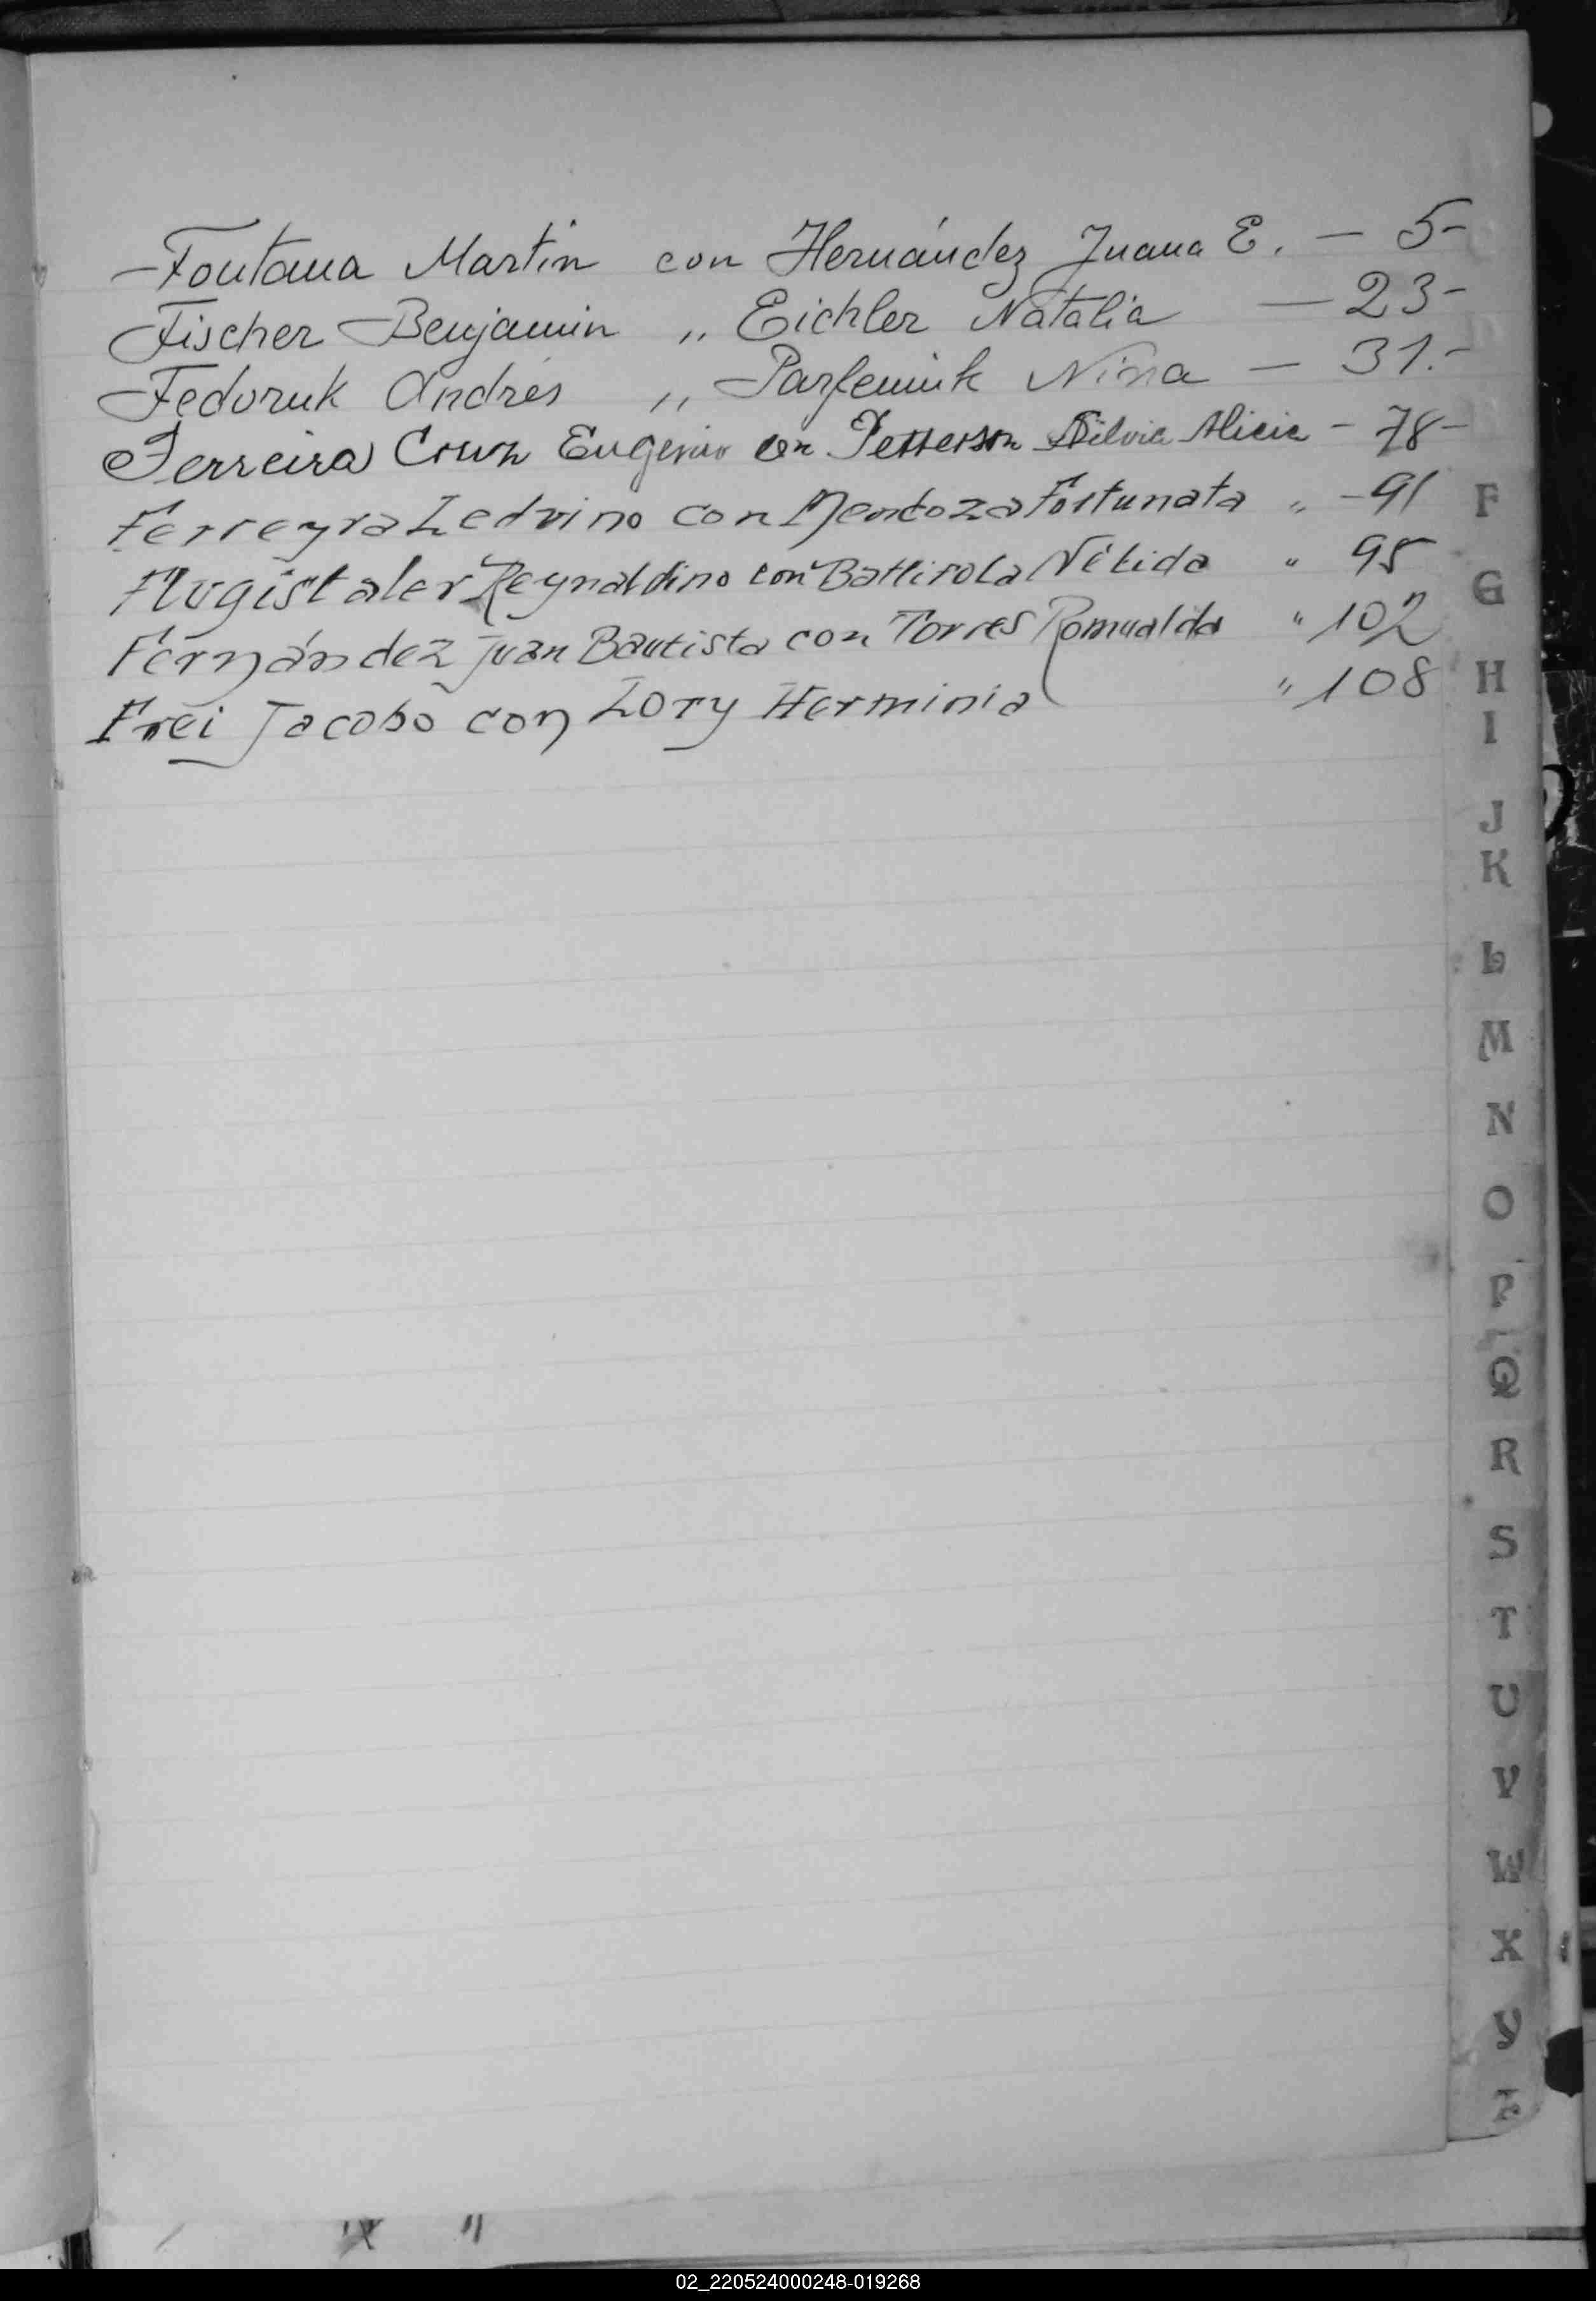 Fontana Martín con Hernández Juana E. — 5-
Fischer Benjamin „ Eichler Natalia — 23-
Fedoruk Andrés „ Parfeniuk Nina — 31.-
Ferreira Eugenio con Petterson Silvia Alicia - 78-
Ferreyra Ledvino con Mendoza Fortunata „ - 91
Flugistaler Reynaldino con Battirola Nélida " 95
Fernández Juan Bautista con Torres Romualda " 102
Frei Jacobo con Lory Herminia " 108
F
G
H
I
J
K
L
M
N
O
P
Q
R
S
T
U
V
W
X
Y
Z
02_220524000248-019268